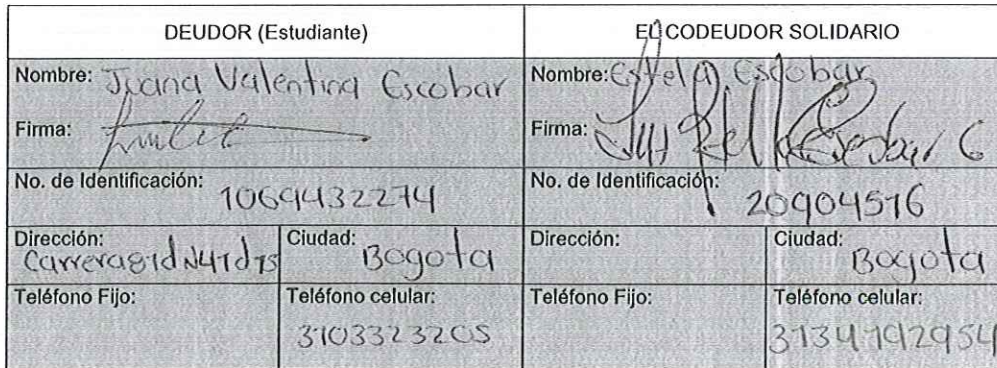 DEUDOR (Estudiante)
EL CODEUDOR SOLIDARIO
Nombre: Juana Valentina Escobar
Nombre: Estela Escobar
Firma:
Firma: Escobar C
No. de Identificación: 1069432274
No. de Identificación: 20904516
Dirección: Carrera81d N41d75
Ciudad: Bogota
Dirección:
Ciudad: Bogota
Teléfono Fijo:
Teléfono celular: 3103323205
Teléfono Fijo:
Teléfono celular: 3134192954